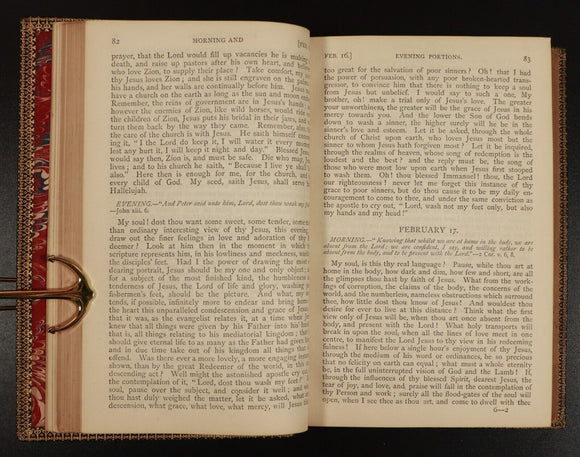 82 MORNING AND [FEB.
prayer, that the Lord would fill up vacancies he is making by
death, and raise up pastors after his own heart, and bring
who love Zion, to supply their place! Take comfort, my
thy Jesus loves Zion; and she is still engraven on the palms
his hands, and her walls are continually before him. Jesus
have a church on the earth as long as the sun and moon
Remember, the reins of government are in Jesus's hands;
however the enemies of Zion, like wild horses, would ride
the children of Zion, Jesus puts his bridal in their jaws, and
turn them back by the way they came. Remember, also,
the care of the church is with Jesus. He saith himself concerning
it, "I the Lord do keep it, I will water it every moment
lest any hurt it, I will keep it night and day." Blessed Jesus
would say then, Zion is, and must be safe. Die who may,
lives; and to his church he saith, "Because I live ye shall
also." Here then is enough for me, for the church, and
every child of God. My soul, saith Jesus, shall serve
Hallelujah.
EVENING.—"And Peter said unto him, Lord, dost thou wash my feet?"
—John xiii. 6.
My soul! dost thou want some sweet, some tender, some
than ordinary interesting view of thy Jesus, this evening,
draw out the finer feelings in love and adoration of thy
deemer? Look at him then in the moment in which
scripture represents him, in his lowliness and meekness, washing
the disciples' feet. Had I the power of drawing the most
dearing portrait, Jesus should be my one and only object;
for a subject of the most finished kind, the humbleness
tenderness of Jesus, the Lord of life and glory, washing
fishermen's feet, should be the picture. And what, my soul,
tends, if possible, infinitely more to endear and bring home
the heart this unparalleled condescension and grace of Jesus,
that it was, as the evangelist relates it, at a time when
knew that all things were given by his Father into his hands;
that is, all things relating to his mediatorial kingdom; that
should give eternal life to as many as the Father had given him,
and in due time take out of his kingdom all things that
offend. Was there ever a more lovely, a more engaging instance
shown, than by the great Redeemer of the world, in this
descending act? Well might the astonished apostle cry out,
the contemplation of it, "Lord, dost thou wash my feet?"
soul, pause over the subject, and consider it well; and when
thou hast duly weighed the matter, let it be asked, what
descension, what grace, what love, what mercy, will Jesus think
FEB. 16.] EVENING PORTIONS. 83
too great for the salvation of poor sinners? Oh! that I had
the power of persuasion, with any poor broken-hearted trans-
gressor, to convince him that there is nothing to keep a soul
from Jesus but unbelief. I would say to such a one, My
brother, oh! make a trial only of Jesus's love. The greater
your unworthiness, the greater will be the grace of Jesus in his
mercy towards you. And the lower the Son of God bends
down to wash a sinner, the higher surely will he be in the
sinner's love and esteem. Let it be asked, through the whole
church of Christ upon earth, who loves Jesus most but the
sinner to whom Jesus hath forgiven most? Let it be inquired,
through the realms of heaven, whose song of redemption is the
loudest and the best? and the reply must be, the song of
those who were most low upon earth when Jesus first stooped
to wash them. Oh! thou blessed Immanuel! thou, the Lord
our righteousness! never let me forget this instance of thy
grace to poor sinners, but do thou cause it to be my daily en-
couragement to come to thee, and under the same conviction as
the apostle to cry out, "Lord, wash not my feet only, but also
my hands and my head!"
FEBRUARY 17.
MORNING.—"Knowing that whilst we are at home in the body, we are
absent from the Lord; we are confident, I say, and willing rather to be
absent from the body, and to be present with the Lord."—2 Cor. v. 6, 8.
My soul, is this thy real language? Pause, while thou art at
home in the body, how dark and dim, how few and short, are all
the glimpses thou hast by faith of Jesus. What from the work-
ings of corruption, the claims of the body, the concerns of the
world, and the numberless, nameless obstructions which surround
thee, how little dost thou know of Jesus! And wouldest thou
desire for ever to live at this distance? Think what the first
view only of Jesus will be, when thou art once absent from the
body, and present with the Lord! What holy transports will
break in upon the soul, when all the lines of love meet in one
centre, to manifest the Lord Jesus to thy view in his redeeming
fulness! If here below a single hour's enjoyment of thy Jesus,
through the medium of his word or ordinances, be so precious
that no felicity on earth can equal; what must a whole eternity
be, in the full uninterrupted vision of God and the Lamb! If,
through the influences of thy blessed Spirit, dearest Jesus, the
tear of joy, and love, and praise will fall in the contemplation of
thy Person and work; surely all the flood-gates of the soul will
open, when I see thee as thou art, and come to dwell with thee
6—2